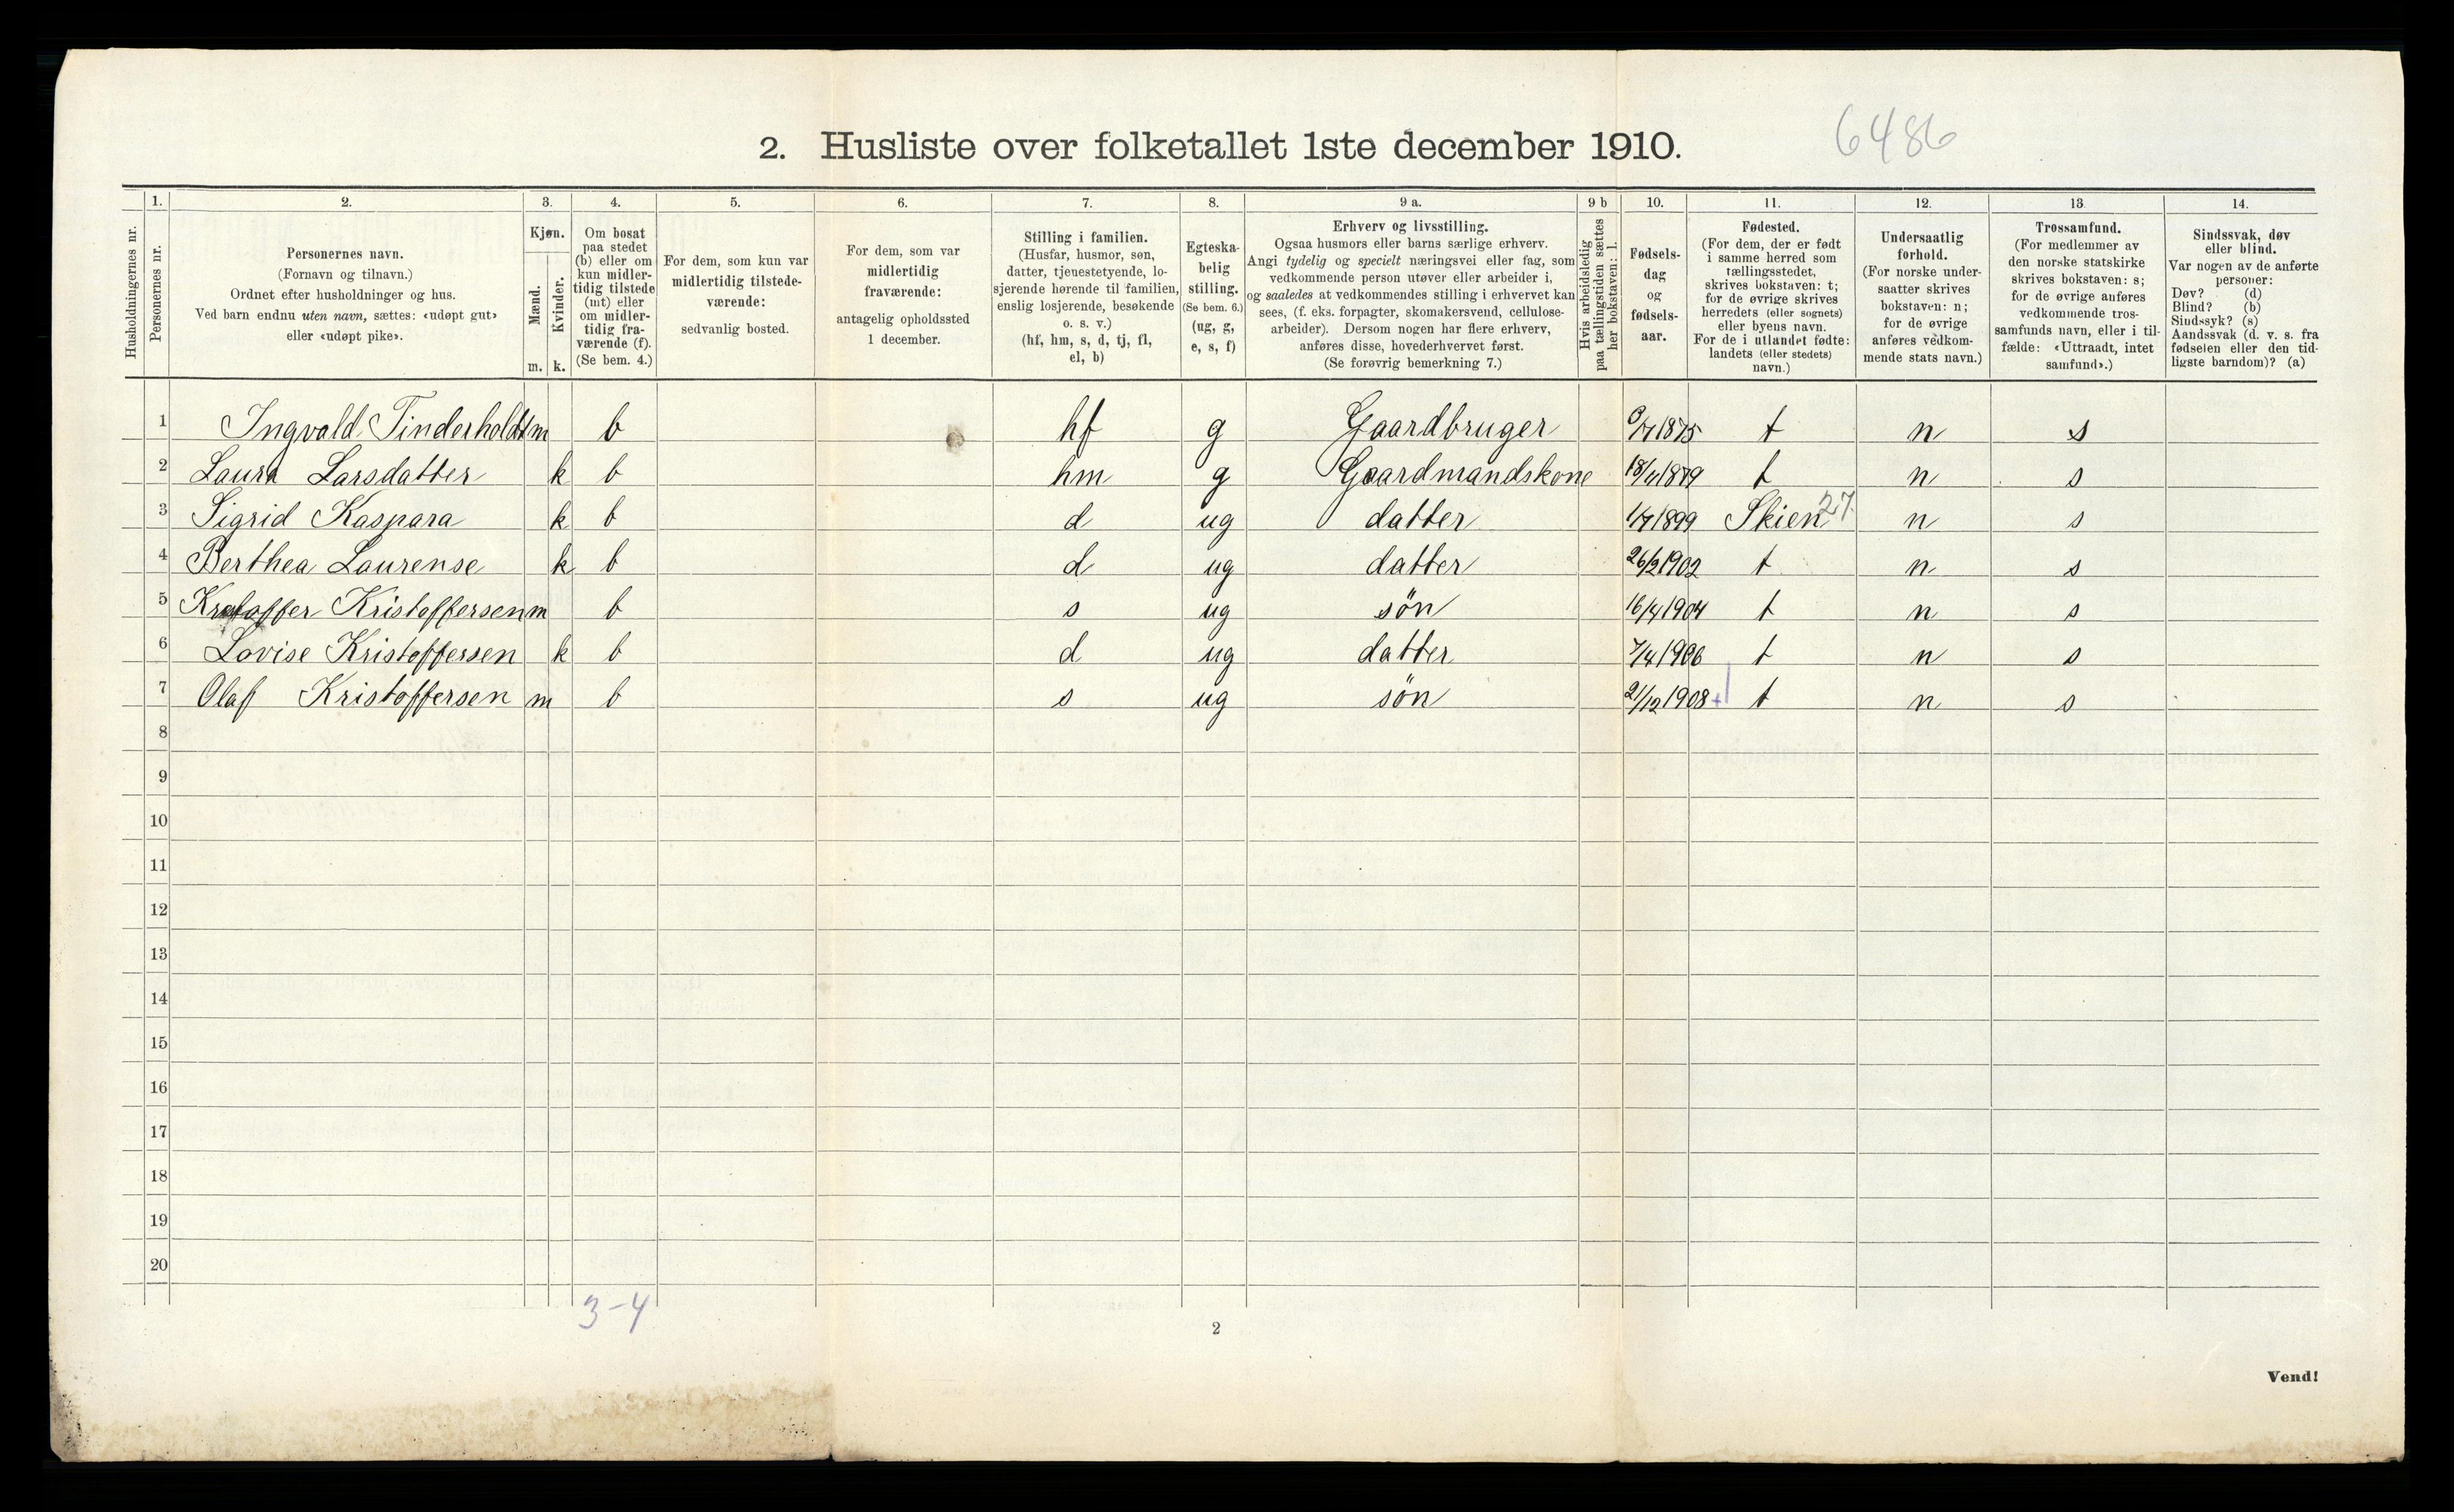 2. Husliste over folketallet 1ste december 1910.
6486
Husholdningernes nr.
1.
Personernes nr.
2.
Personernes navn.
(Fornavn og tilnavn.)
Ordnet efter husholdninger og hus.
Ved barn endnu uten navn, sættes: «udøpt gut»
eller «udøpt pike».
3.
Kjøn.
Mænd.
Kvinder.
m. k.
4.
Om bosat
paa stedet
(b) eller om
kun midler-
tidig tilstede
(mt) eller
om midler-
tidig fra-
værende (f).
(Se bem. 4.)
5.
For dem, som kun var
midlertidig tilstede-
værende:
sedvanlig bosted.
6.
For dem, som var
midlertidig
fraværende:
antagelig opholdssted
1 december.
7.
Stilling i familien.
(Husfar, husmor, søn,
datter, tjenestetyende, lo-
sjerende hørende til familien,
enslig losjerende, besøkende
o. s. v.)
(hf, hm, s, d, tj, fl,
el, b)
8.
Egteska-
belig
stilling.
(Se bem. 6.)
(ug, g,
e, s, f)
9 a.
Erhverv og livsstilling.
Ogsaa husmors eller barns særlige erhverv.
Angi tydelig og specielt næringsvei eller fag, som
vedkommende person utøver eller arbeider i,
og saaledes at vedkommendes stilling i erhvervet kan
sees, (f. eks. forpagter, skomakersvend, cellulose-
arbeider). Dersom nogen har flere erhverv,
anføres disse, hovederhvervet først.
(Se forøvrig bemerkning 7.)
9 b
Hvis arbeidsledig
paa tællingstiden sættes
her bokstaven: l.
10.
Fødsels-
dag
og
fødsels-
aar.
11.
Fødested.
(For dem, der er født
i samme herred som
tællingsstedet,
skrives bokstaven: t;
for de øvrige skrives
herredets (eller sognets)
eller byens navn.
For de i utlandet fødte:
landets (eller stedets)
navn.)
12.
Undersaatlig
forhold.
(For norske under-
saatter skrives
bokstaven: n;
for de øvrige
anføres vedkom-
mende stats navn.)
13.
Trossamfund.
(For medlemmer av
den norske statskirke
skrives bokstaven: s;
for de øvrige anføres
vedkommende tros-
samfunds navn, eller i til-
fælde: «Uttraadt, intet
samfund».)
14.
Sindssvak, døv
eller blind.
Var nogen av de anførte
personer:
Døv? (d)
Blind? (b)
Sindssyk? (s)
Aandssvak (d. v. s. fra
fødselen eller den tid-
ligste barndom)? (a)
1 Ingvald Tinderholdt m b hf g Gaardbruger 1875 t n s
2 Laura Larsdatter k b hm g Gaardmandskone 1879 t n s
3 Sigrid Kaspara k b d ug datter 1/7 1899 Skien 27 n s
4 Berthea Laurense k b d ug datter 26/2 1902 t n s
5 Kristoffer Kristoffersen m b s ug søn 16/4 1904 t n s
6 Lovise Kristoffersen k b d ug datter 7/4 1906 t n s
7 Olaf Kristoffersen m b s ug søn 21/12 1908 t n s
8
9
10
11
12
13
14
15
16
17
18
19
20
3-4
2
Vend!